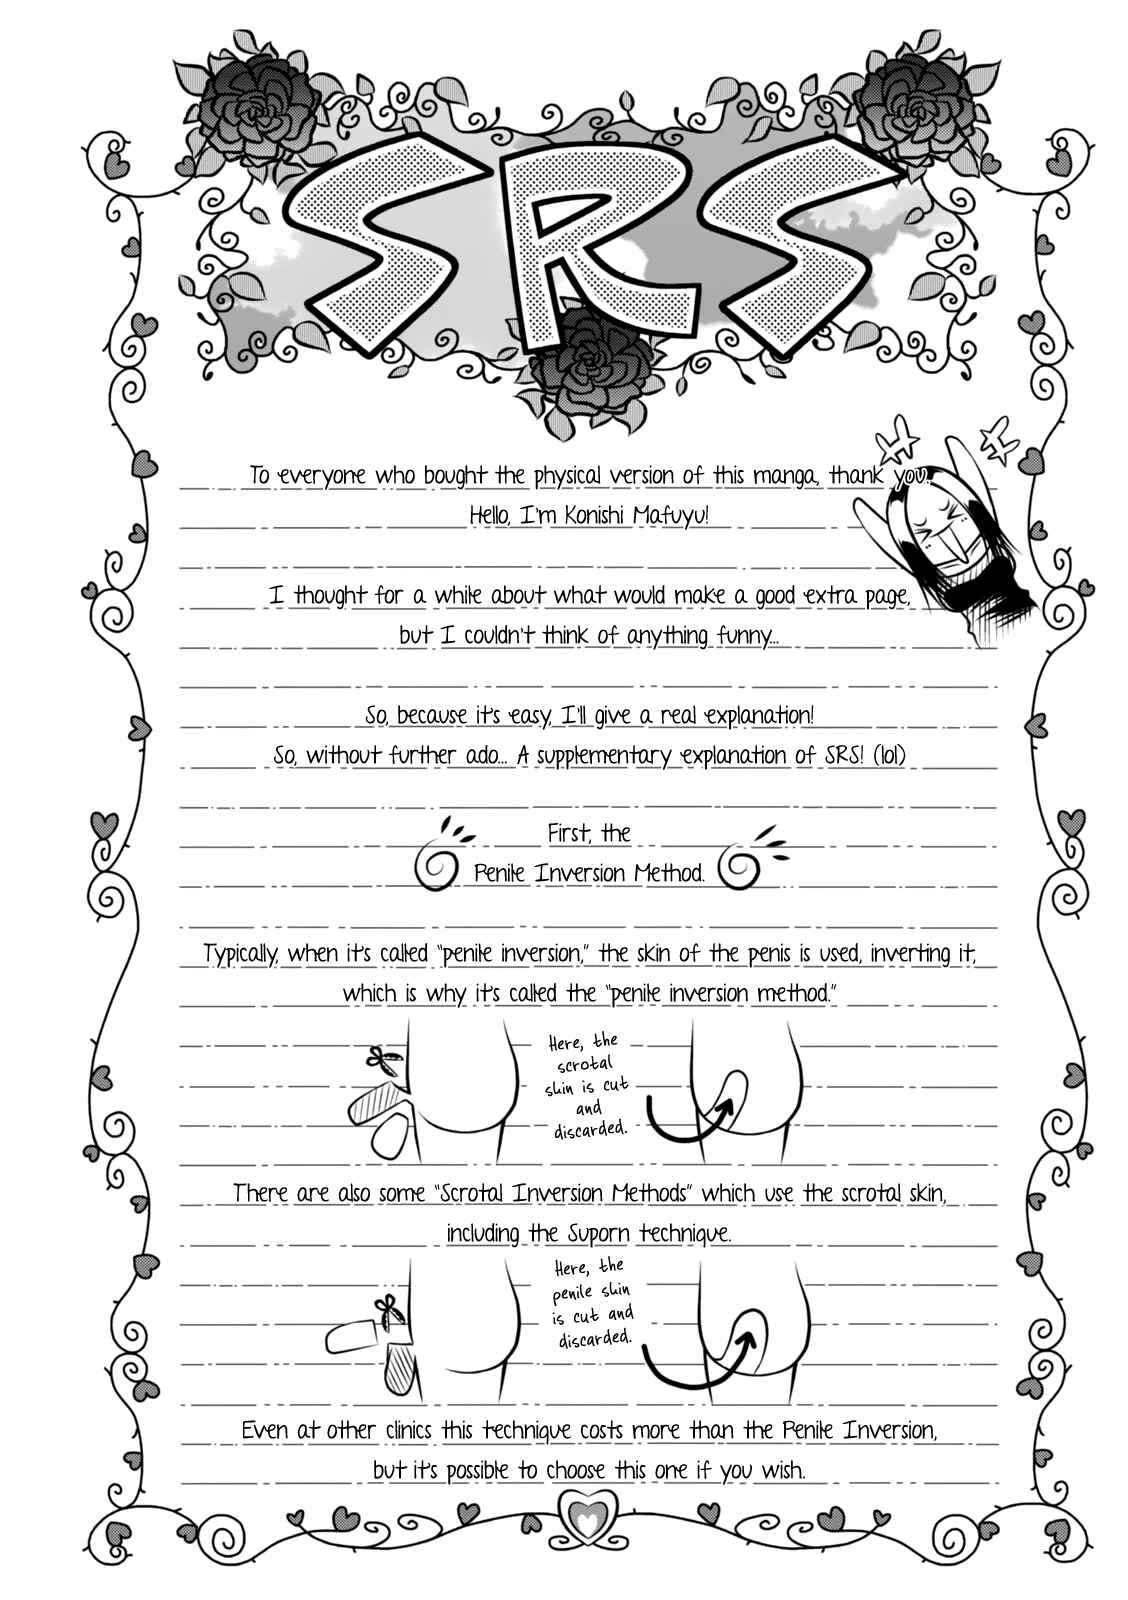 SRS
To everyone who bought the physical version of this manga, thank you.
Hello, I'm Konishi Mafuyu!
I thought for a while about what would make a good extra page,
but I couldn't think of anything funny...
So, because it's easy, I'll give a real explanation!
So, without further ado... A supplementary explanation of SRS! (lol)
First, the
Penile Inversion Method.
Typically, when it's called "penile inversion," the skin of the penis is used, inverting it,
which is why it's called the "penile inversion method."
Here, the
scrotal
skin is cut
and
discarded.
There are also some "Scrotal Inversion Methods" which use the scrotal skin,
including the Suporn technique.
Here, the
penile skin
is cut and
discarded.
Even at other clinics this technique costs more than the Penile Inversion,
but it's possible to choose this one if you wish.